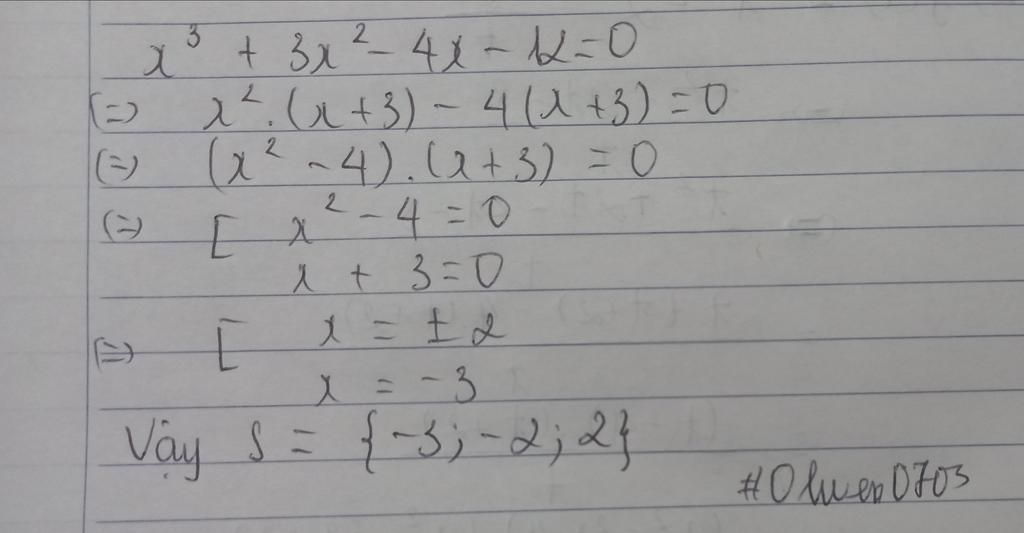 x³ + 3x² - 4x - 12 = 0
(=) x² . (x + 3) - 4(x + 3) = 0
(=) (x² - 4) . (x + 3) = 0
(=) [ x² - 4 = 0
x + 3 = 0
(=) [ x = ± 2
x = -3
Vậy S = {-3; -2; 2}
#Olwen0703